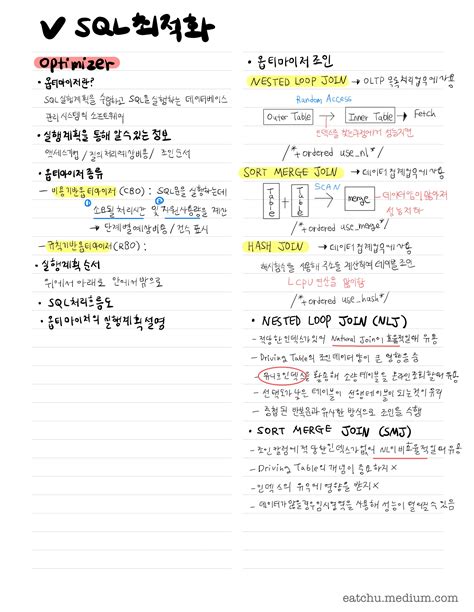 ✓ SQL 최적화
Optimizer
• 옵티마이저란?
SQL 실행계획을 수립하고 SQL을 실행하는 데이터베이스
관리 시스템의 소프트웨어
• 실행계획을 통해 알 수 있는 정보
액세스기법 / 질의처리예상비용 / 조인순서
• 옵티마이저 종류
- 비용기반옵티마이저 (CBO) : SQL문을 실행하는데
소요될 처리시간 및 자원사용량을 계산
→ 단계별 예상비용 / 건수 표시
- 규칙기반옵티마이저 (RBO) :
• 실행계획 순서
위에서 아래로 안에서 밖으로
• SQL처리흐름도
• 옵티마이저의 실행계획 설명
• 옵티마이저 조인
NESTED LOOP JOIN → OLTP 목록처리업무에 사용
Random Access
Outer Table → Inner Table → Fetch
인덱스를 찾는과정에서 성능저하
/*+ ordered use_nl */
SORT MERGE JOIN → 데이터 집계업무에 사용
Table + Table SCAN → merge
데이터 많아져서
성능저하
/*+ ordered use_merge */
HASH JOIN → 데이터 집계업무에 사용
해시함수를 사용해 주소를 계산하여 테이블 조인
CPU 연산을 많이함
/*+ordered use_hash*/
• NESTED LOOP JOIN (NLJ)
- 적당한 인덱스가 있어 Natural Join이 효율적일때 유용
- Driving Table의 조인 데이터 양이 큰 영향을 줌
- 유니크 인덱스를 활용해 소량테이블을 온라인 조회할때 유용
- 선택도가 낮은 테이블이 선행테이블이 되는것이 유리
- 중첩된 반복문과 유사한 방식으로 조인을 수행
• SORT MERGE JOIN (SMJ)
- 조인 칼럼에 적당한 인덱스가 없어 NL이 비효율적일때 유용
- Driving Table의 개념이 중요하지 X
- 인덱스의 유무에 영향을 받지 X
- 데이터가 많을경우 임시영역을 사용해 성능이 떨어질 수 있음
eatchu.medium.com